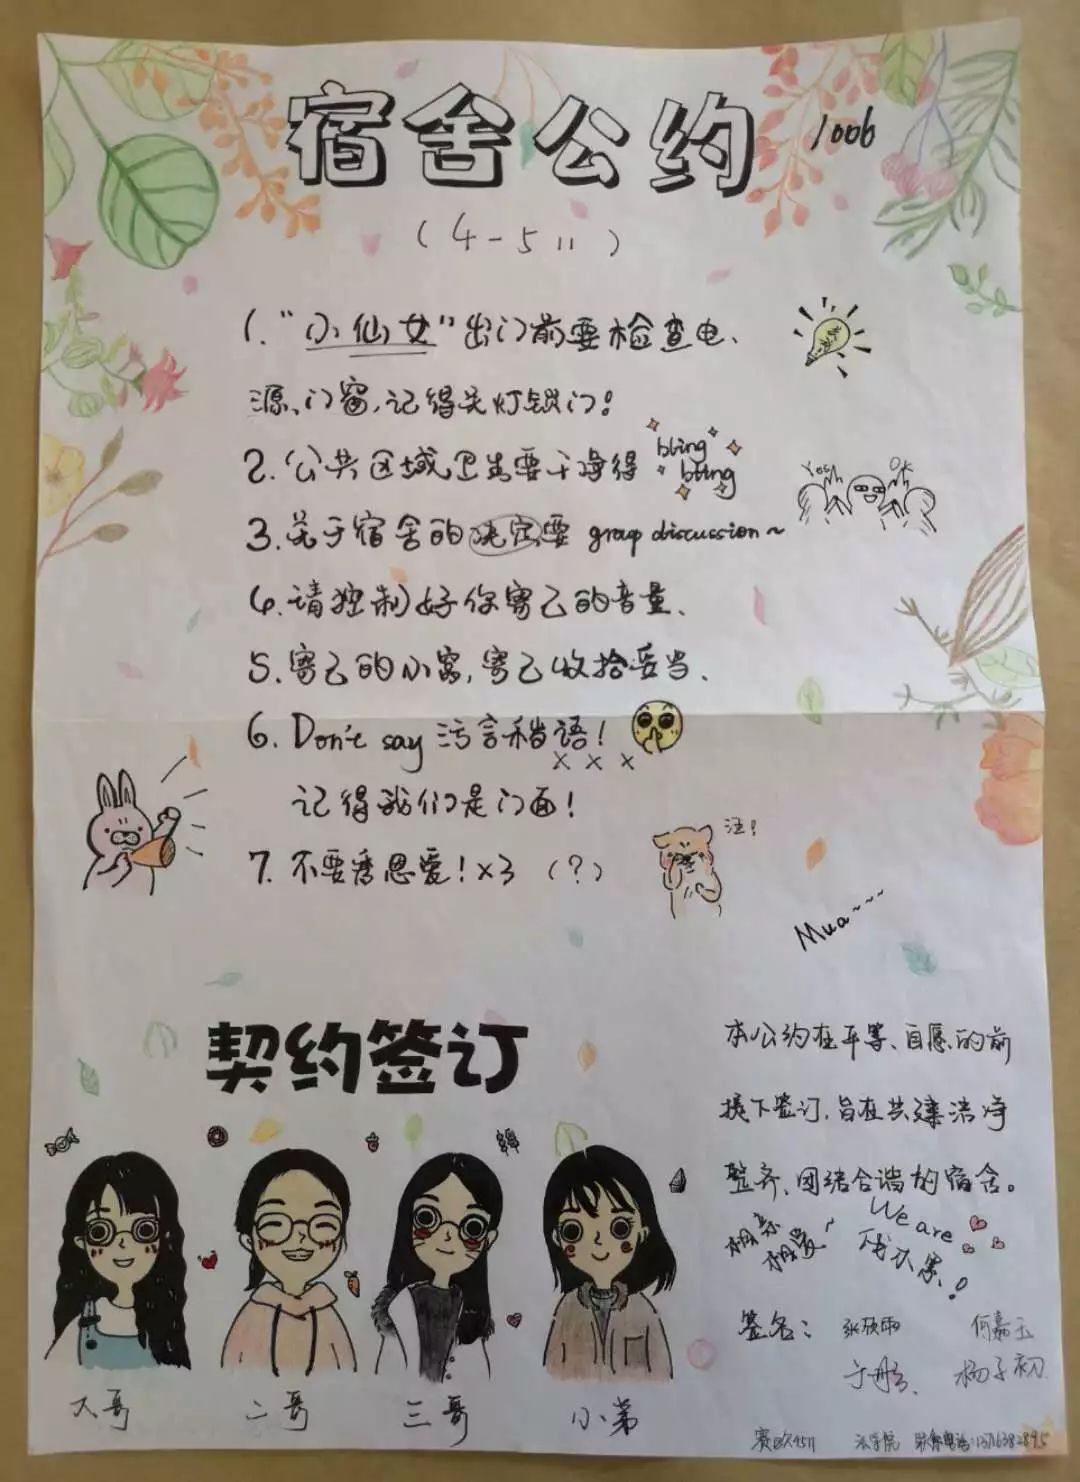 宿舍公约
1006
(4-511)
1."小仙女"出门前要检查电、
源、门窗,记得关灯锁门!
2.公共区域卫生要干净得 bling bling
3.关于宿舍的决定要 group discussion~
Yes
OK
4.请控制好你寄己的音量.
5.寄己的小窝,寄己收拾妥当.
6.Don't say 污言秽语!
x x x
记得我们是门面!
7.不要秀恩爱!×3 (?)
汪!
Mua~~~
契约签订
本公约在平等、自愿的前
提下签订,旨在共建洁净
整齐、团结合谐的宿舍。
相亲相爱~
We are
签名:
张欣雨
何嘉玉
杨子初
大哥
二哥
三哥
小弟
赛欧4511
法学院
联系电话: